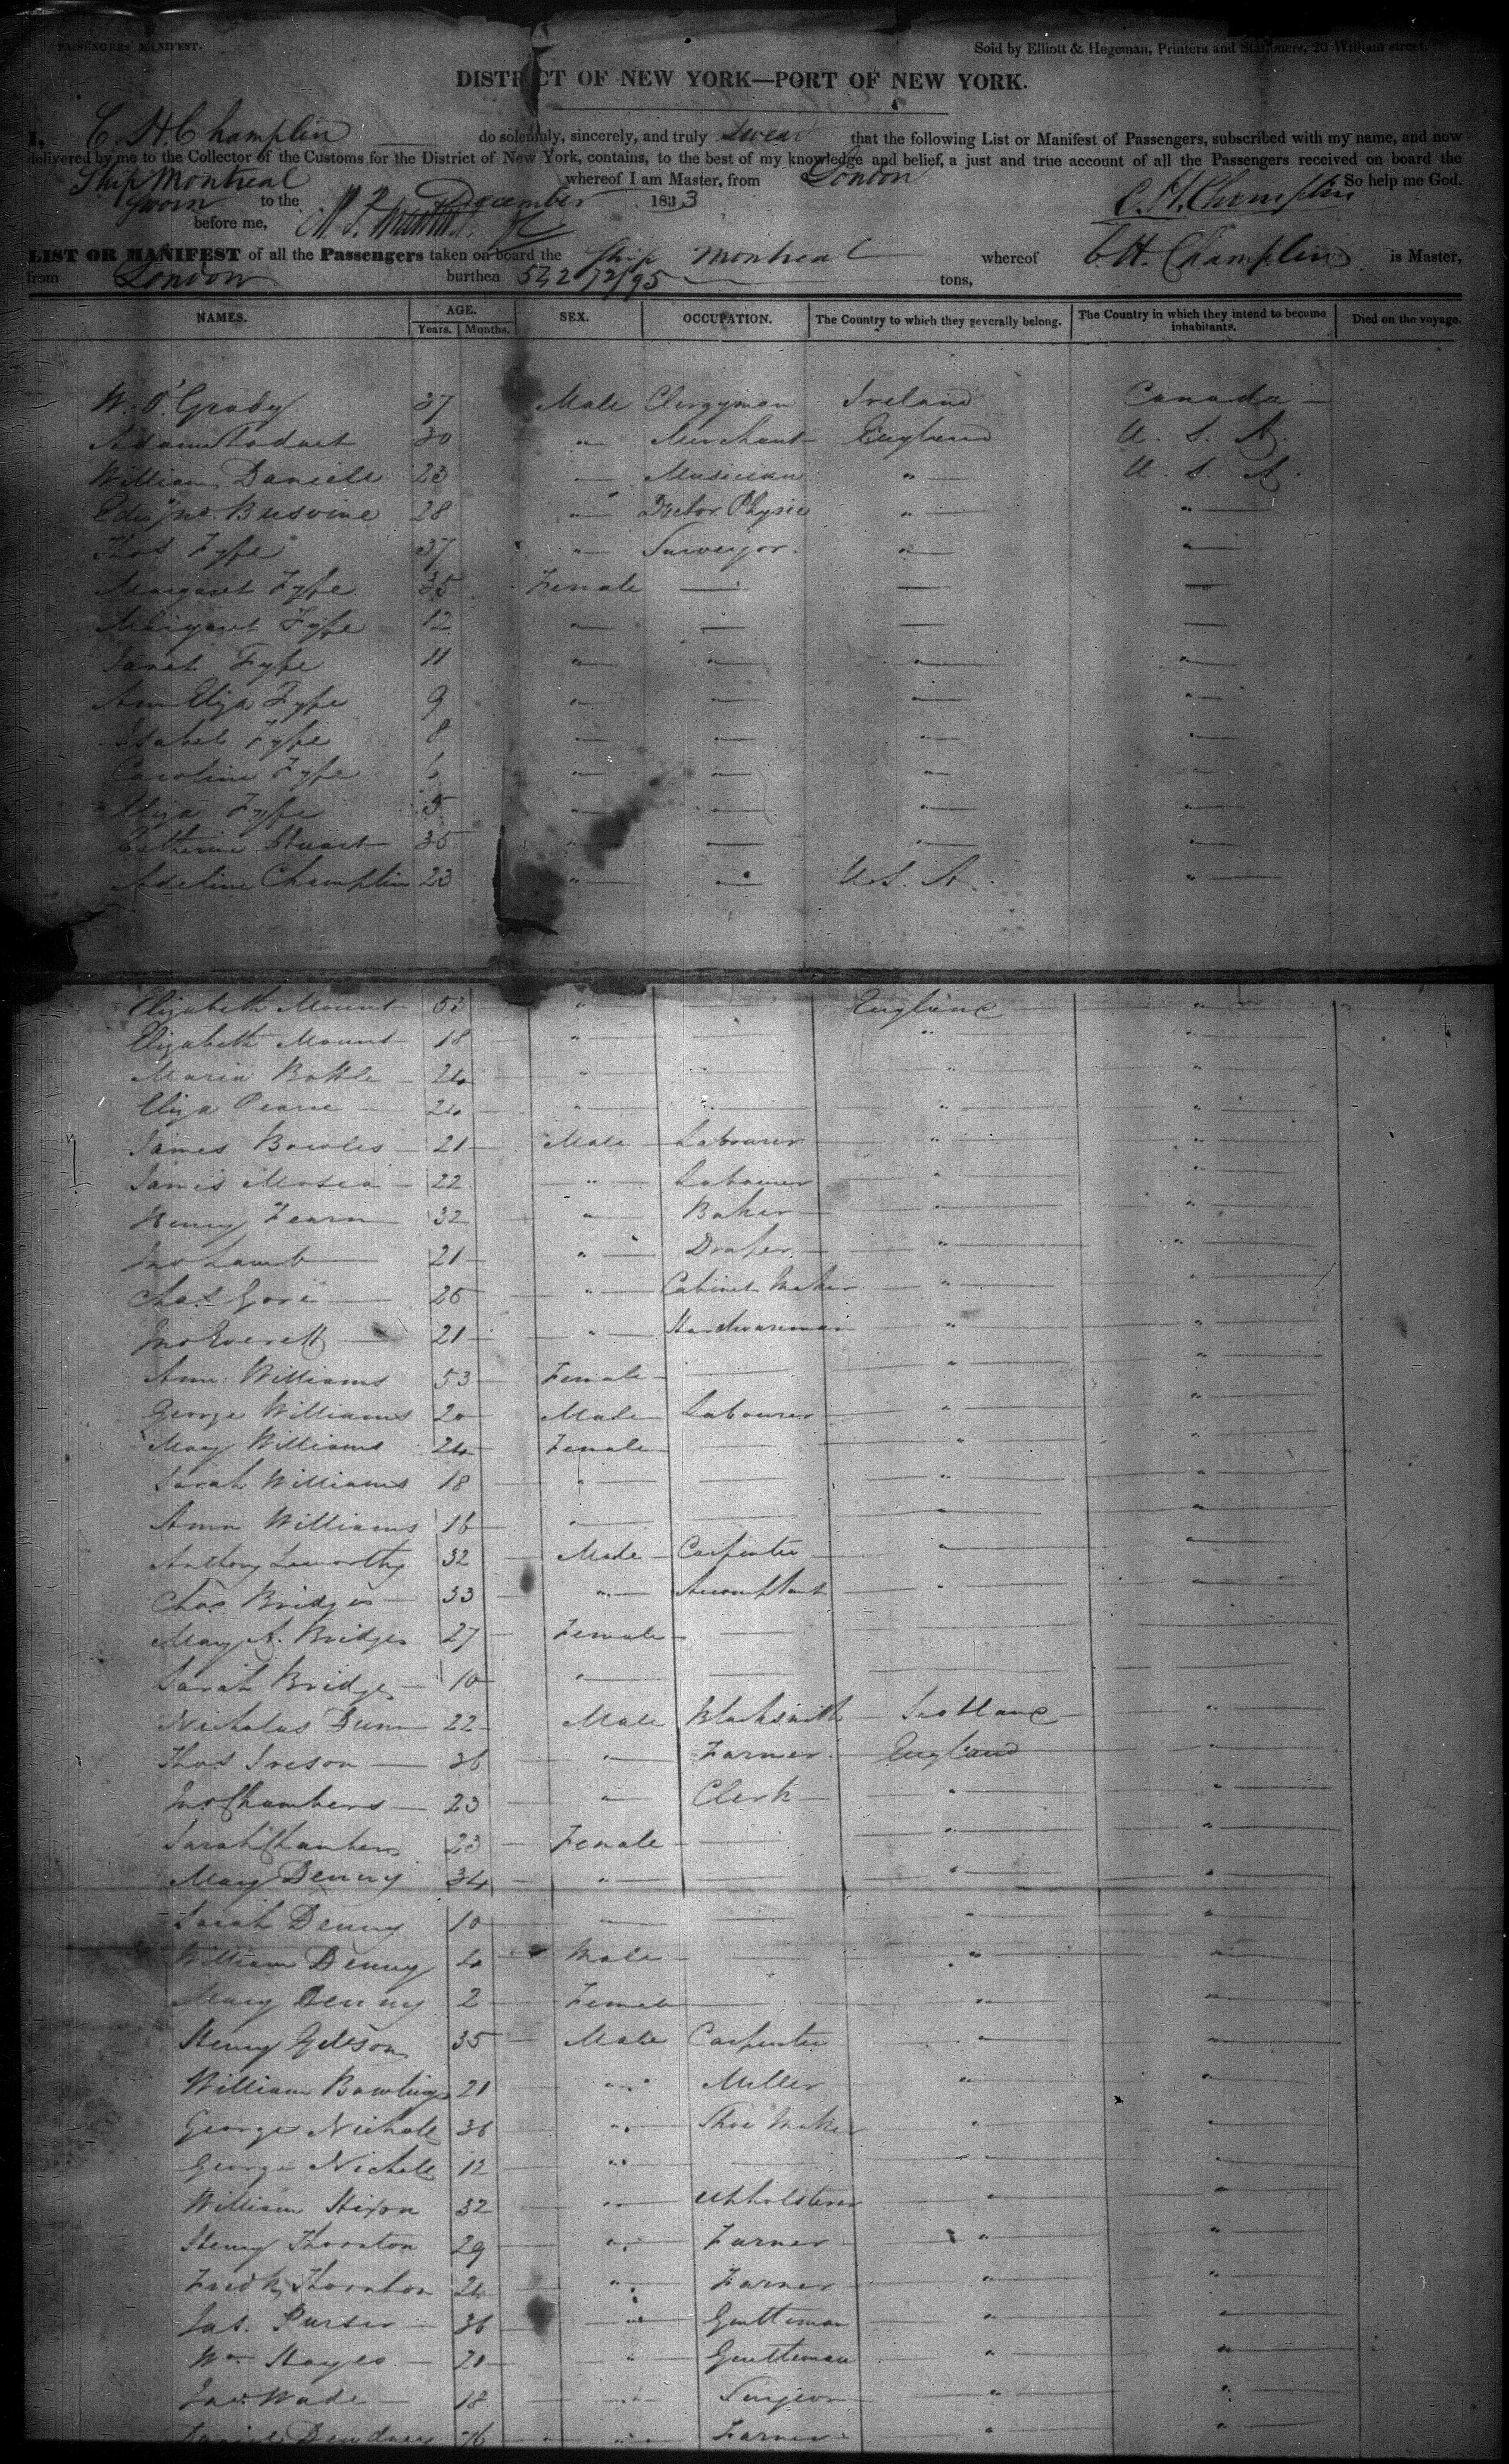 PASSENGERS' MANIFEST.
Sold by Elliott & Hegeman, Printers and Stationers, 20 William street.
DISTRICT OF NEW YORK—PORT OF NEW YORK.
I, C. H. Champlin do solemnly, sincerely, and truly swear that the following List or Manifest of Passengers, subscribed with my name, and now
delivered by me to the Collector of the Customs for the District of New York, contains, to the best of my knowledge and belief, a just and true account of all the Passengers received on board the
Ship Montreal whereof I am Master, from London So help me God.
Sworn to the 2 December 1833 C. H. Champlin
before me,
LIST OR MANIFEST of all the Passengers taken on board the Ship Montreal whereof C. H. Champlin is Master,
from London burthen 542 72/95 tons,
NAMES. AGE. SEX. OCCUPATION. The Country to which they severally belong. The Country in which they intend to become inhabitants. Died on the voyage.
Years. Months.
W. O'Grady 37 Male Clergyman Ireland Canada
Adam 30 " Merchant England U. S. A.
William Daniell 23 " Musician " U. S. A.
Edwd Jno. Busvine 28 " Doctor Physic " "
Thos Fyfe 37 " Surveyor " "
Margaret Fyfe 35 Female
Margaret Fyfe 12 "
Janet Fyfe 11 " " " "
Ann Eliza Fyfe 9 " " " "
Isabel Fyfe 8 " " " "
Caroline Fyfe 6 " " " "
Eliza Fyfe 5 " " " "
Catherine Stuart 35 " " "
Adeline Champlin 23 " " U. S. A. "
Elizabeth Mount 53 " England "
Elizabeth Mount 18 " " "
Maria Battle 24 " " "
Eliza Pearse 24 " " " "
James Bowles 21 Male Labourer " "
James 22 " Labourer " "
Henry Fearn 32 " Baker " "
Jno Lamb 21 " Draper " "
Chas Gore 26 " Cabinet Maker " "
Jno Everett 21 " Hardwareman " "
Ann Williams 53 Female " "
George Williams 20 Male Labourer " "
Mary Williams 24 Female " "
Sarah Williams 18 " " "
Ann Williams 16 " " "
Anthony 32 Male Carpenter " "
Chas Bridges 33 " Accomptant " "
Mary A. Bridges 27 Female
Sarah Bridges 10 "
Nicholas Dunn 22 Male Blacksmith Scotland "
Thos Ireson 36 " Farmer England "
Jno Chambers 23 " Clerk " "
Sarah Chambers 23 Female " "
Mary Denny 34 " " "
Sarah Denny 10 " " "
William Denny 4 Male " "
Mary Denny 2 Female " "
Henry Gibson 35 Male Carpenter " "
William Bowling 21 " Miller " "
George Nicholl 36 " Shoe Maker " "
George Nicholl 12 " " "
William Hixon 32 " Upholsterer " "
Henry Thornton 29 " Farmer " "
Fredk Thornton 24 " Farmer " "
Jas. Purser 36 " Gentleman " "
Wm Hayes 20 " Gentleman " "
Jas Wade 18 " Surgeon " "
Daniel Dendney 26 " Farmer " "